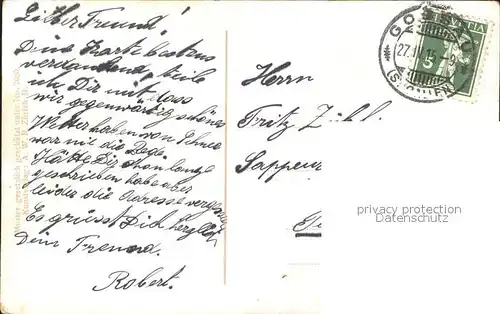 Lieber Freund!
Deine Karte bestens
verdankend, teile
ich Dir mit, dass
wir gegenwärtig schönes
Wetter haben von Schnee
war nie die Rede.
Hätte Dir schon lange
geschrieben habe aber
leider die Adresse vergessen
Es grüsst Dich herzlich
Dein Freund.
Robert.
Herrn
Fritz
Sappeur
GOSSAU
(ST. GALLEN)
27.
5
privacy protection
Datenschutz